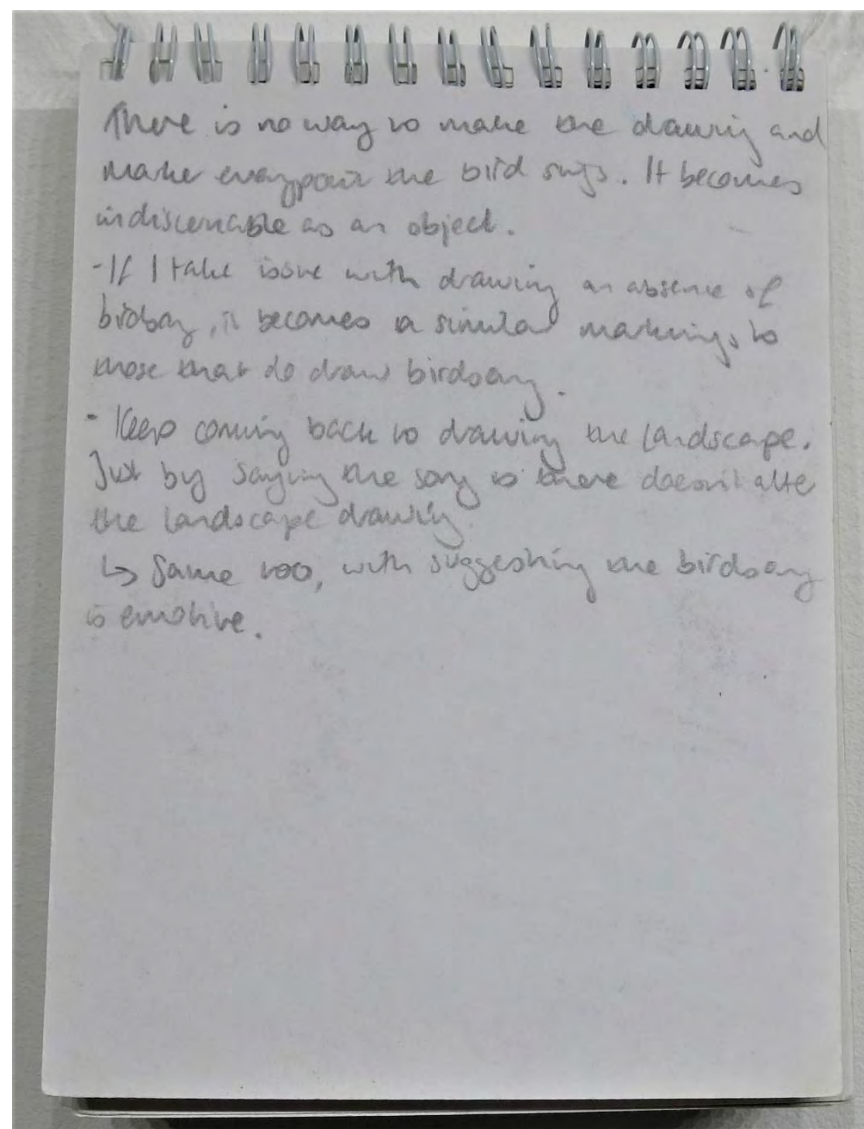 There is no way to make the drawing and
make every point the bird sings. It becomes
indiscernable as an object.
- If I take issue with drawing an absence of
birdsong, it becomes a similar markings to
those that do draw birdsong.
- Keep coming back to drawing the landscape.
Just by saying the song is there doesn't alte
the landscape drawing.
↳ Same too, with suggesting the birdsong
is emotive.